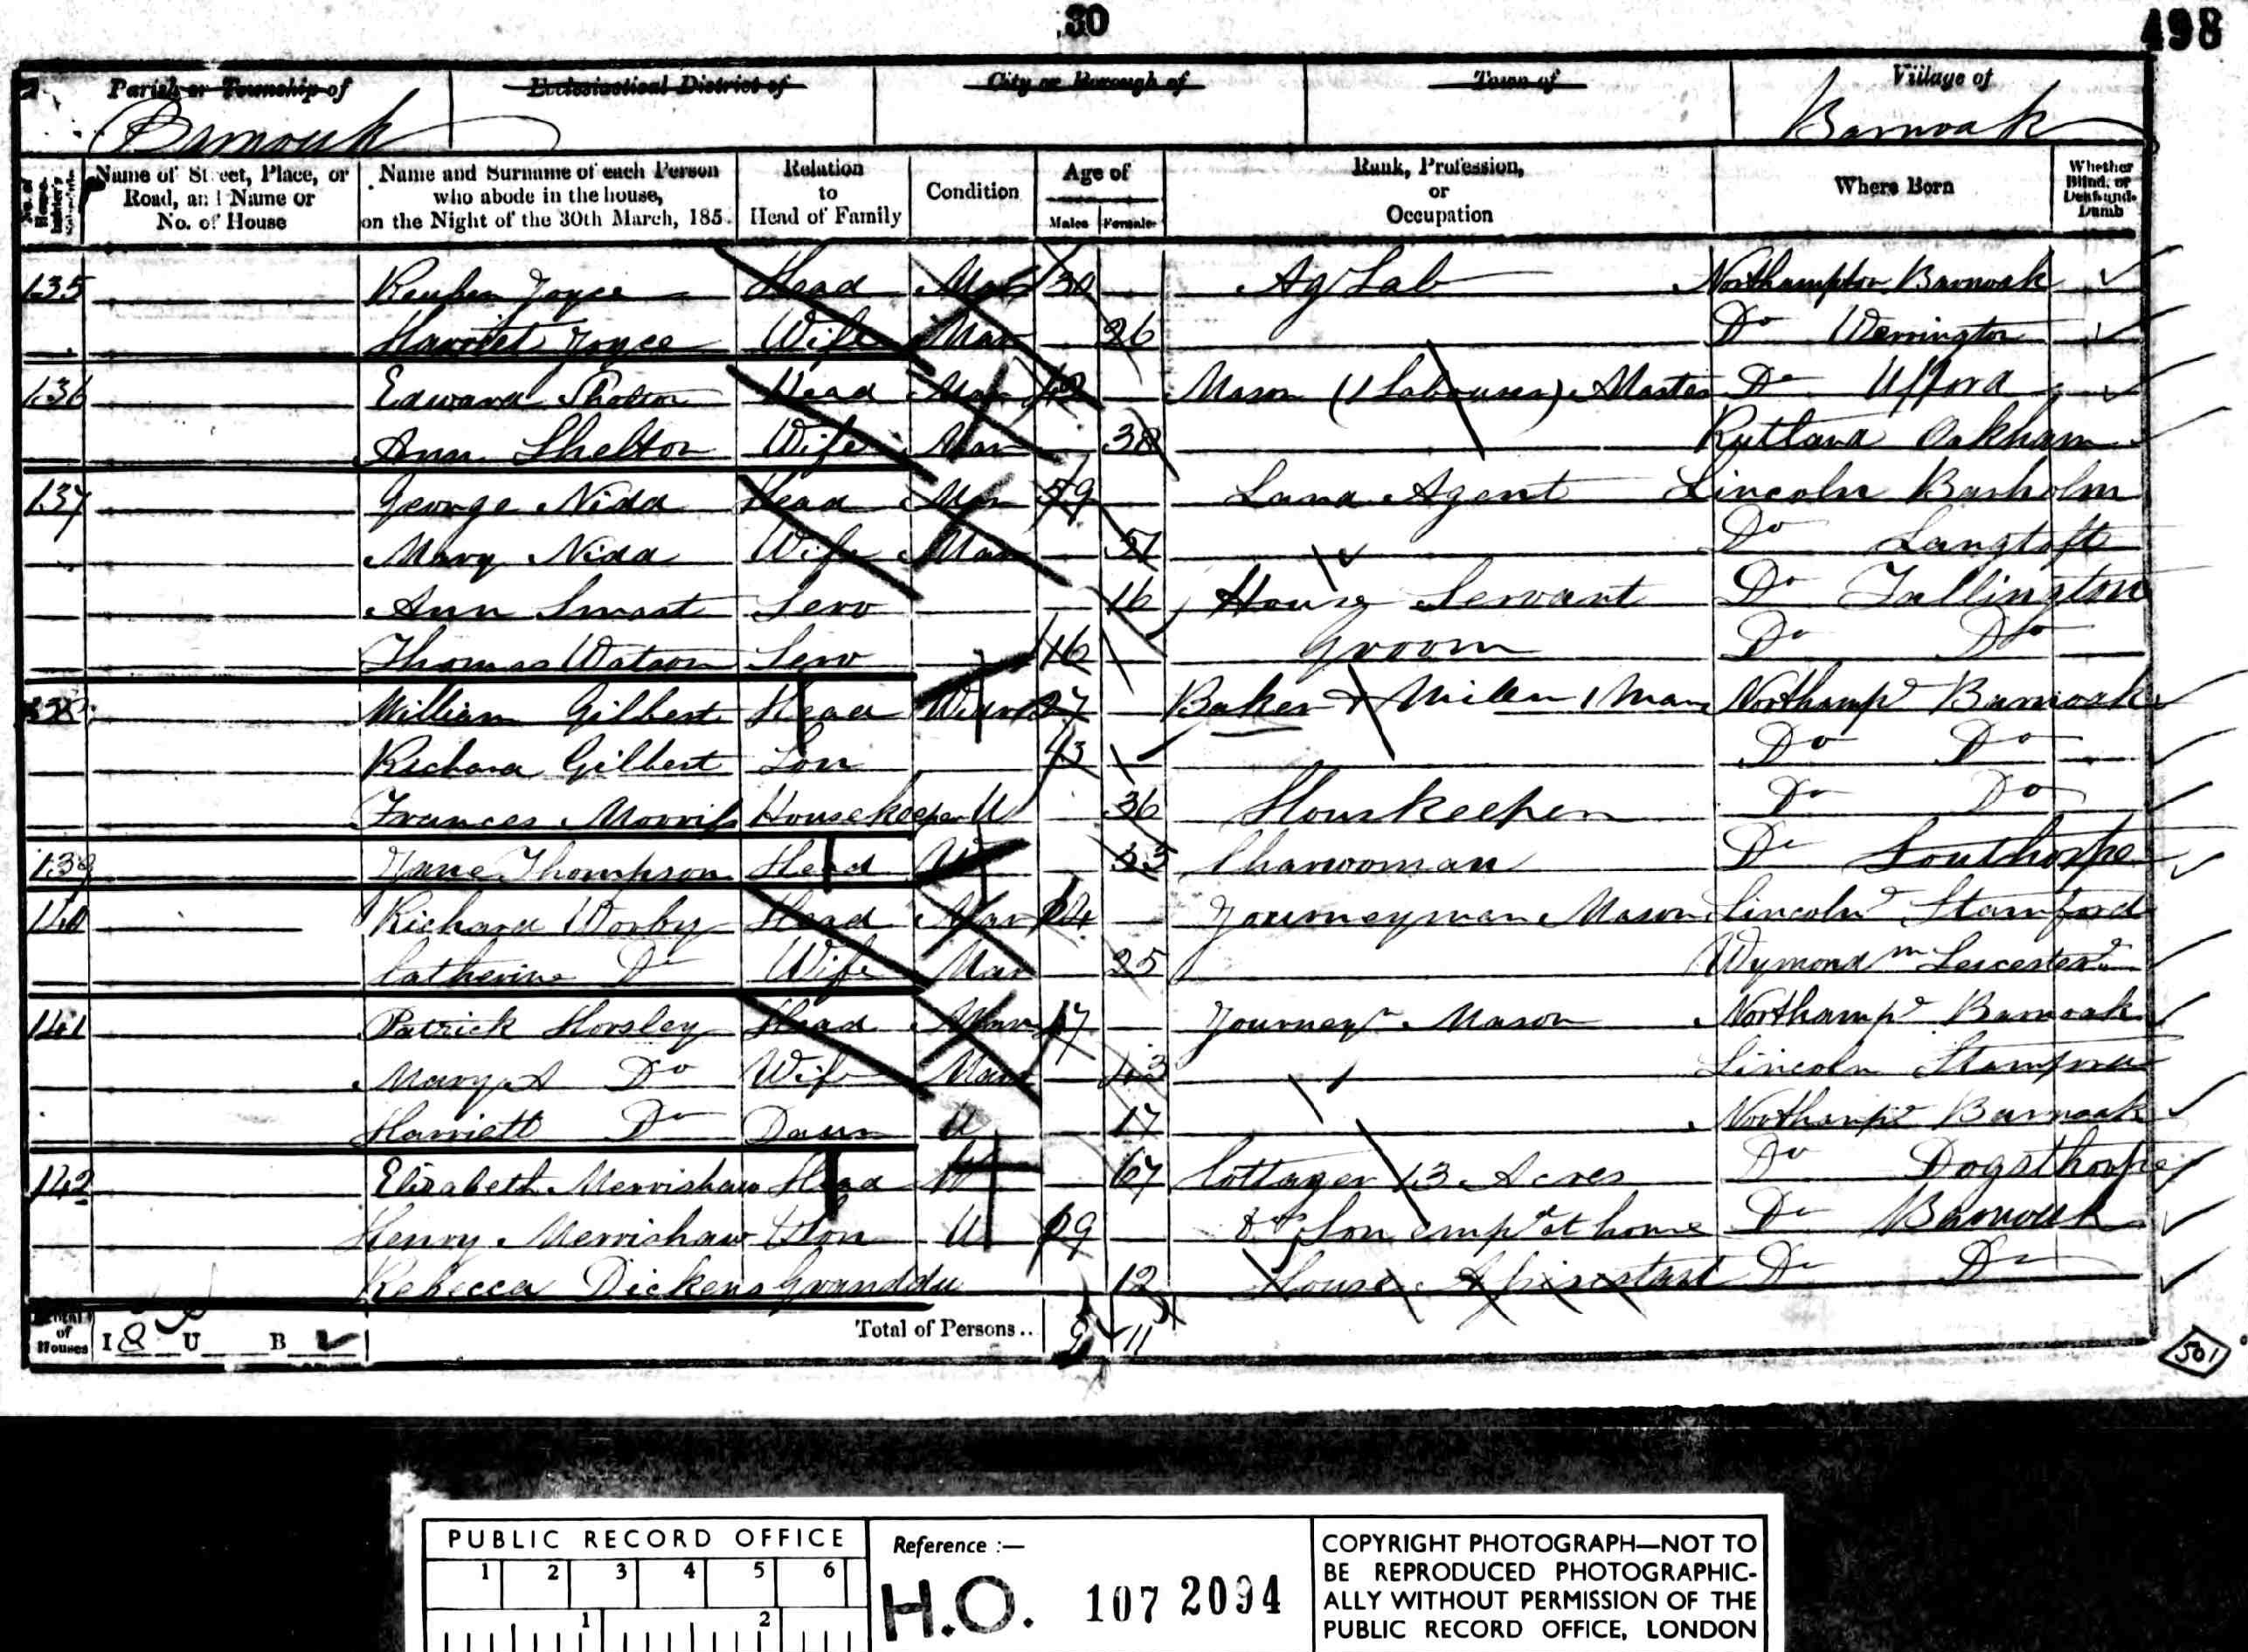 30
498
Parish or Township of Ecclesiastical District of City or Borough of Town of Village of
Barnoak Barnoak
No. of House Name of Street, Place, or Road, and Name or No. of House Name and Surname of each Person who abode in the house, on the Night of the 30th March, 185 Relation to Head of Family Condition Age of Males Females Rank, Profession, or Occupation Where Born Whether Blind, or Deaf-and-Dumb
135 Reuben Joyce Head Mar 30 Ag Lab Northampton Barnoak
Harriet Joyce Wife Mar 26 Do Werrington
136 Edward Shelton Head Mar Mason (1 Labourer) Master Do Ufford
Ann Shelton Wife Mar 38 Rutland Oakham
137 George Nidd Head Mar 59 Land Agent Lincoln Barholm
Mary Nidd Wife Mar 51 Do Langtoft
Ann Smart Serv 16 House Servant Do Tallington
Thomas Watson Serv 16 Groom Do Do
138 William Gilbert Head Widr Baker & Miller 1 Man Northampr Barnoak
Richard Gilbert Son Do Do
Frances Morriss Housekeeper U 36 Houskeeper Do Do
139 Jane Thompson Head Charwoman Do Southorpe
140 Richard Worby Head Mar 24 Journeyman Mason Lincolnr Stamford
Catherine Do Wife Mar 25 Wymondm Leicesterr
141 Patrick Horsley Head Mar Journeyn Mason Northampr Barnoak
Mary A Do Wife Mar 43 Lincoln Stamford
Harriett Do Daur U 17 Northampr Barnoak
142 Elizabeth Merrishaw Head W 67 Cottager 13 Acres Do Dogsthorpe
Henry Merrishaw Son U 29 Son empd at home Do Barnoak
Rebecca Dickens Granddu 12 House Do Do
Total of Houses I 8 U B Total of Persons.. 9 11
501
PUBLIC RECORD OFFICE
1 2 3 4 5 6
1 2
Reference :—
H.O. 107 2094
COPYRIGHT PHOTOGRAPH—NOT TO
BE REPRODUCED PHOTOGRAPHIC-
ALLY WITHOUT PERMISSION OF THE
PUBLIC RECORD OFFICE, LONDON